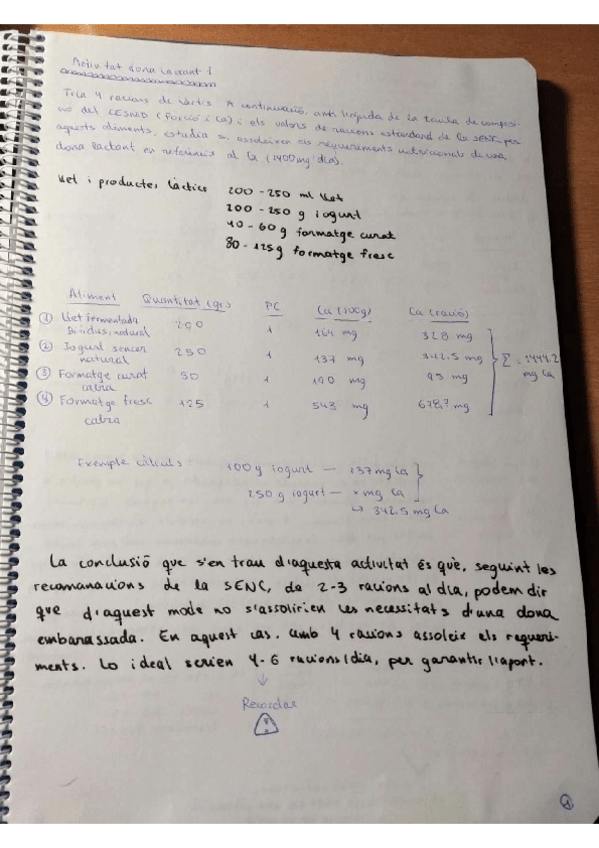 Activitat dona lactant 1
Tria 4 racions de làctis. A continuació, amb l'ajuda de la taula de composi-
ció del CESNID (Porció i Ca) i els valors de racions estàndard de la SENC per
aquests aliments, estudia si assoleixen els requeriments nutricionals de una
dona lactant en referència al Ca (1400 mg/dia).
Llet i productes làctics 200 - 250 ml llet
200 - 250 g iogurt
40 - 60 g formatge curat
80 - 125 g formatge fresc
Aliment Quantitat (gr) PC Ca (100g) Ca (ració)
① Llet fermentada 200 1 164 mg 328 mg
Bifidus, natural
② Iogurt sencer 250 1 137 mg 342.5 mg
natural
③ Formatge curat 50 1 190 mg 95 mg
cabra
④ Formatge fresc 125 1 543 mg 678,7 mg
cabra
Σ = 1444.2
mg Ca
Exemple càlculs 100 g iogurt — 137 mg Ca
250 g iogurt — x mg Ca
↳ 342.5 mg Ca
La conclusió que s'en trau d'aquesta activitat és què, seguint les
recomanacions de la SENC, de 2-3 racions al dia, podem dir
que d'aquest mode no s'assolirien les necessitats d'una dona
embarassada. En aquest cas, amb 4 racions assoleix els requeri-
ments. Lo ideal serien 4-6 racions/dia, per garantir l'aport.
↓
Recordar
①